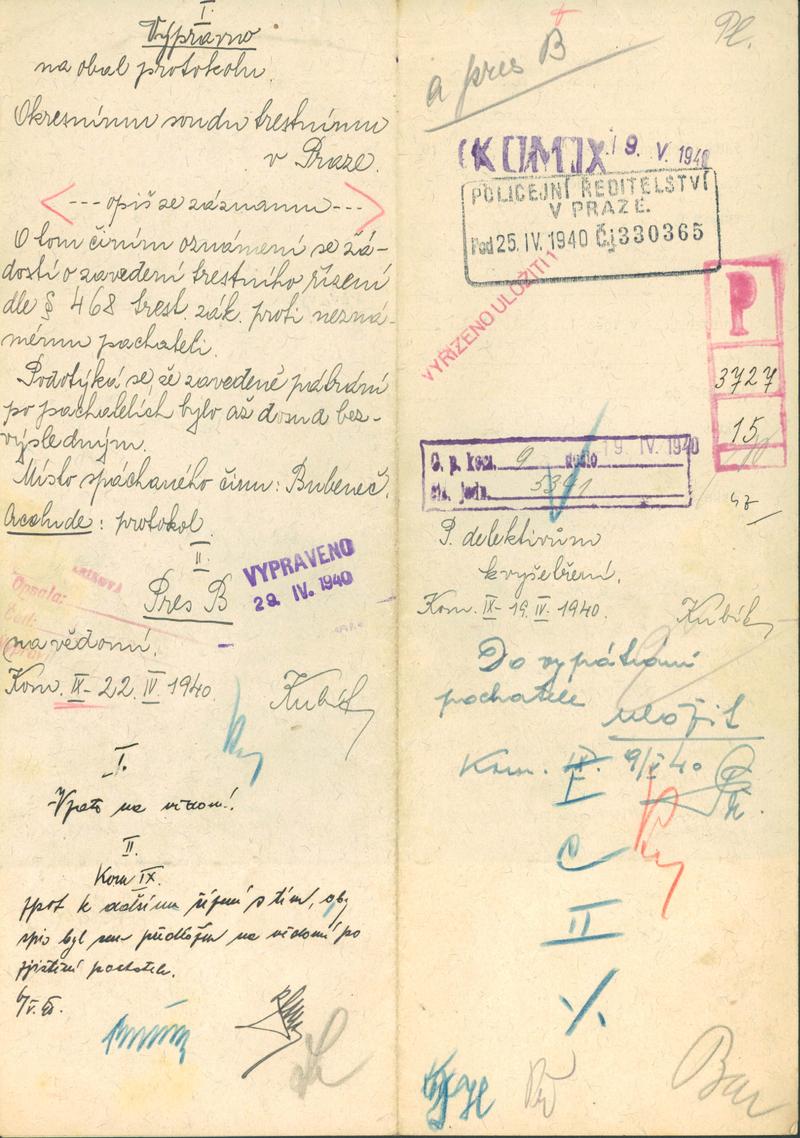 I.
Výpravno
na obal protokolu.
Okresnímu soudu trestnímu
v Praze.
--- opiš ze záznamu ---
O tom činím oznámení se žá-
dostí o zavedení trestního řízení
dle § 468 trest. zák. proti nezná-
mému pachateli.
Podotýká se, že zavedené pátrání
po pachatelích bylo až dosud bez-
výsledným.
Místo spáchaného činu: Bubeneč.
: protokol
II.
Pres B
VYPRAVENO
29. IV. 1940
Opsala:
na vědomí.
Kom. IX - 22. IV. 1940.
Kubát
I.
Vzato na vědomí.
II.
Kom IX.
zpět k dalšímu řízení s tím, aby
spis byl předložen na vědomí po
zjištění pachatele.
a pres B
Pl.
KOM IX 19. V. 1940
POLICEJNÍ ŘEDITELSTVÍ
V PRAZE.
25. IV. 1940 Čj 330365
VYŘÍZENO ULOŽITI!
P
3727
15
C. p. kom. 9 došlo 19. IV. 1940
čís. jedn. 5391
P. detektivům
k vyšetření.
Kom. IX - 19. IV. 1940.
Kubát
Do vypátrání
pachatele
uložit
Kom. IX. 9/V 40
I
C
II
Bar